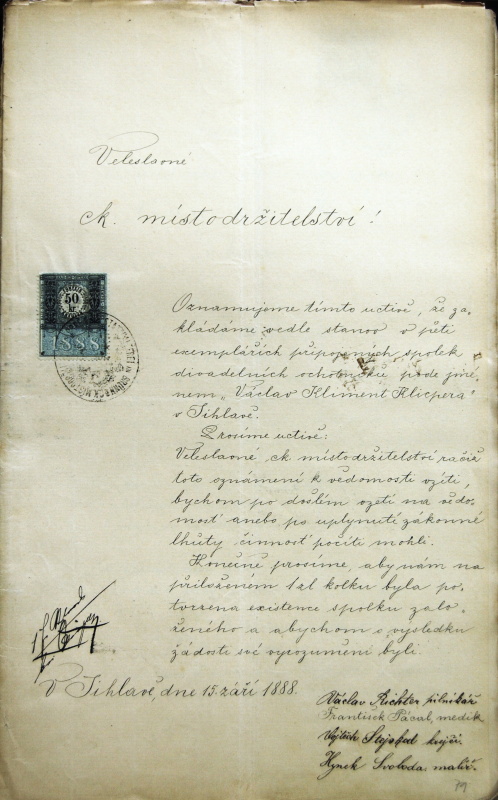 Veleslavné
ck. místodržitelství!
50
kr
1888
Oznamujeme tímto uctivě, že za-
kládáme vedle stanov v pěti
exemplářích připojených spolek
divadelních ochotníků pode jmé-
nem „Václav Kliment Klicpera"
v Jihlavě.
Prosíme uctivě:
Veleslavné ck. místodržitelství račiž
toto oznámení k vědomosti vzíti,
bychom po došlém vzetí na vědo-
most anebo po uplynutí zákonné
lhůty činnosť počíti mohli.
Konečně prosíme, aby nám na
přiloženém 1 zl kolku byla po-
tvrzena existence spolku zalo-
ženého a abychom o výsledku
žádosti své vyrozuměni byli.
V Jihlavě, dne 15. září 1888.
Václav Richter pilnikář
František Pácal, medik
Vojtěch Stejskal krejčí
Hynek Svoboda malíř.